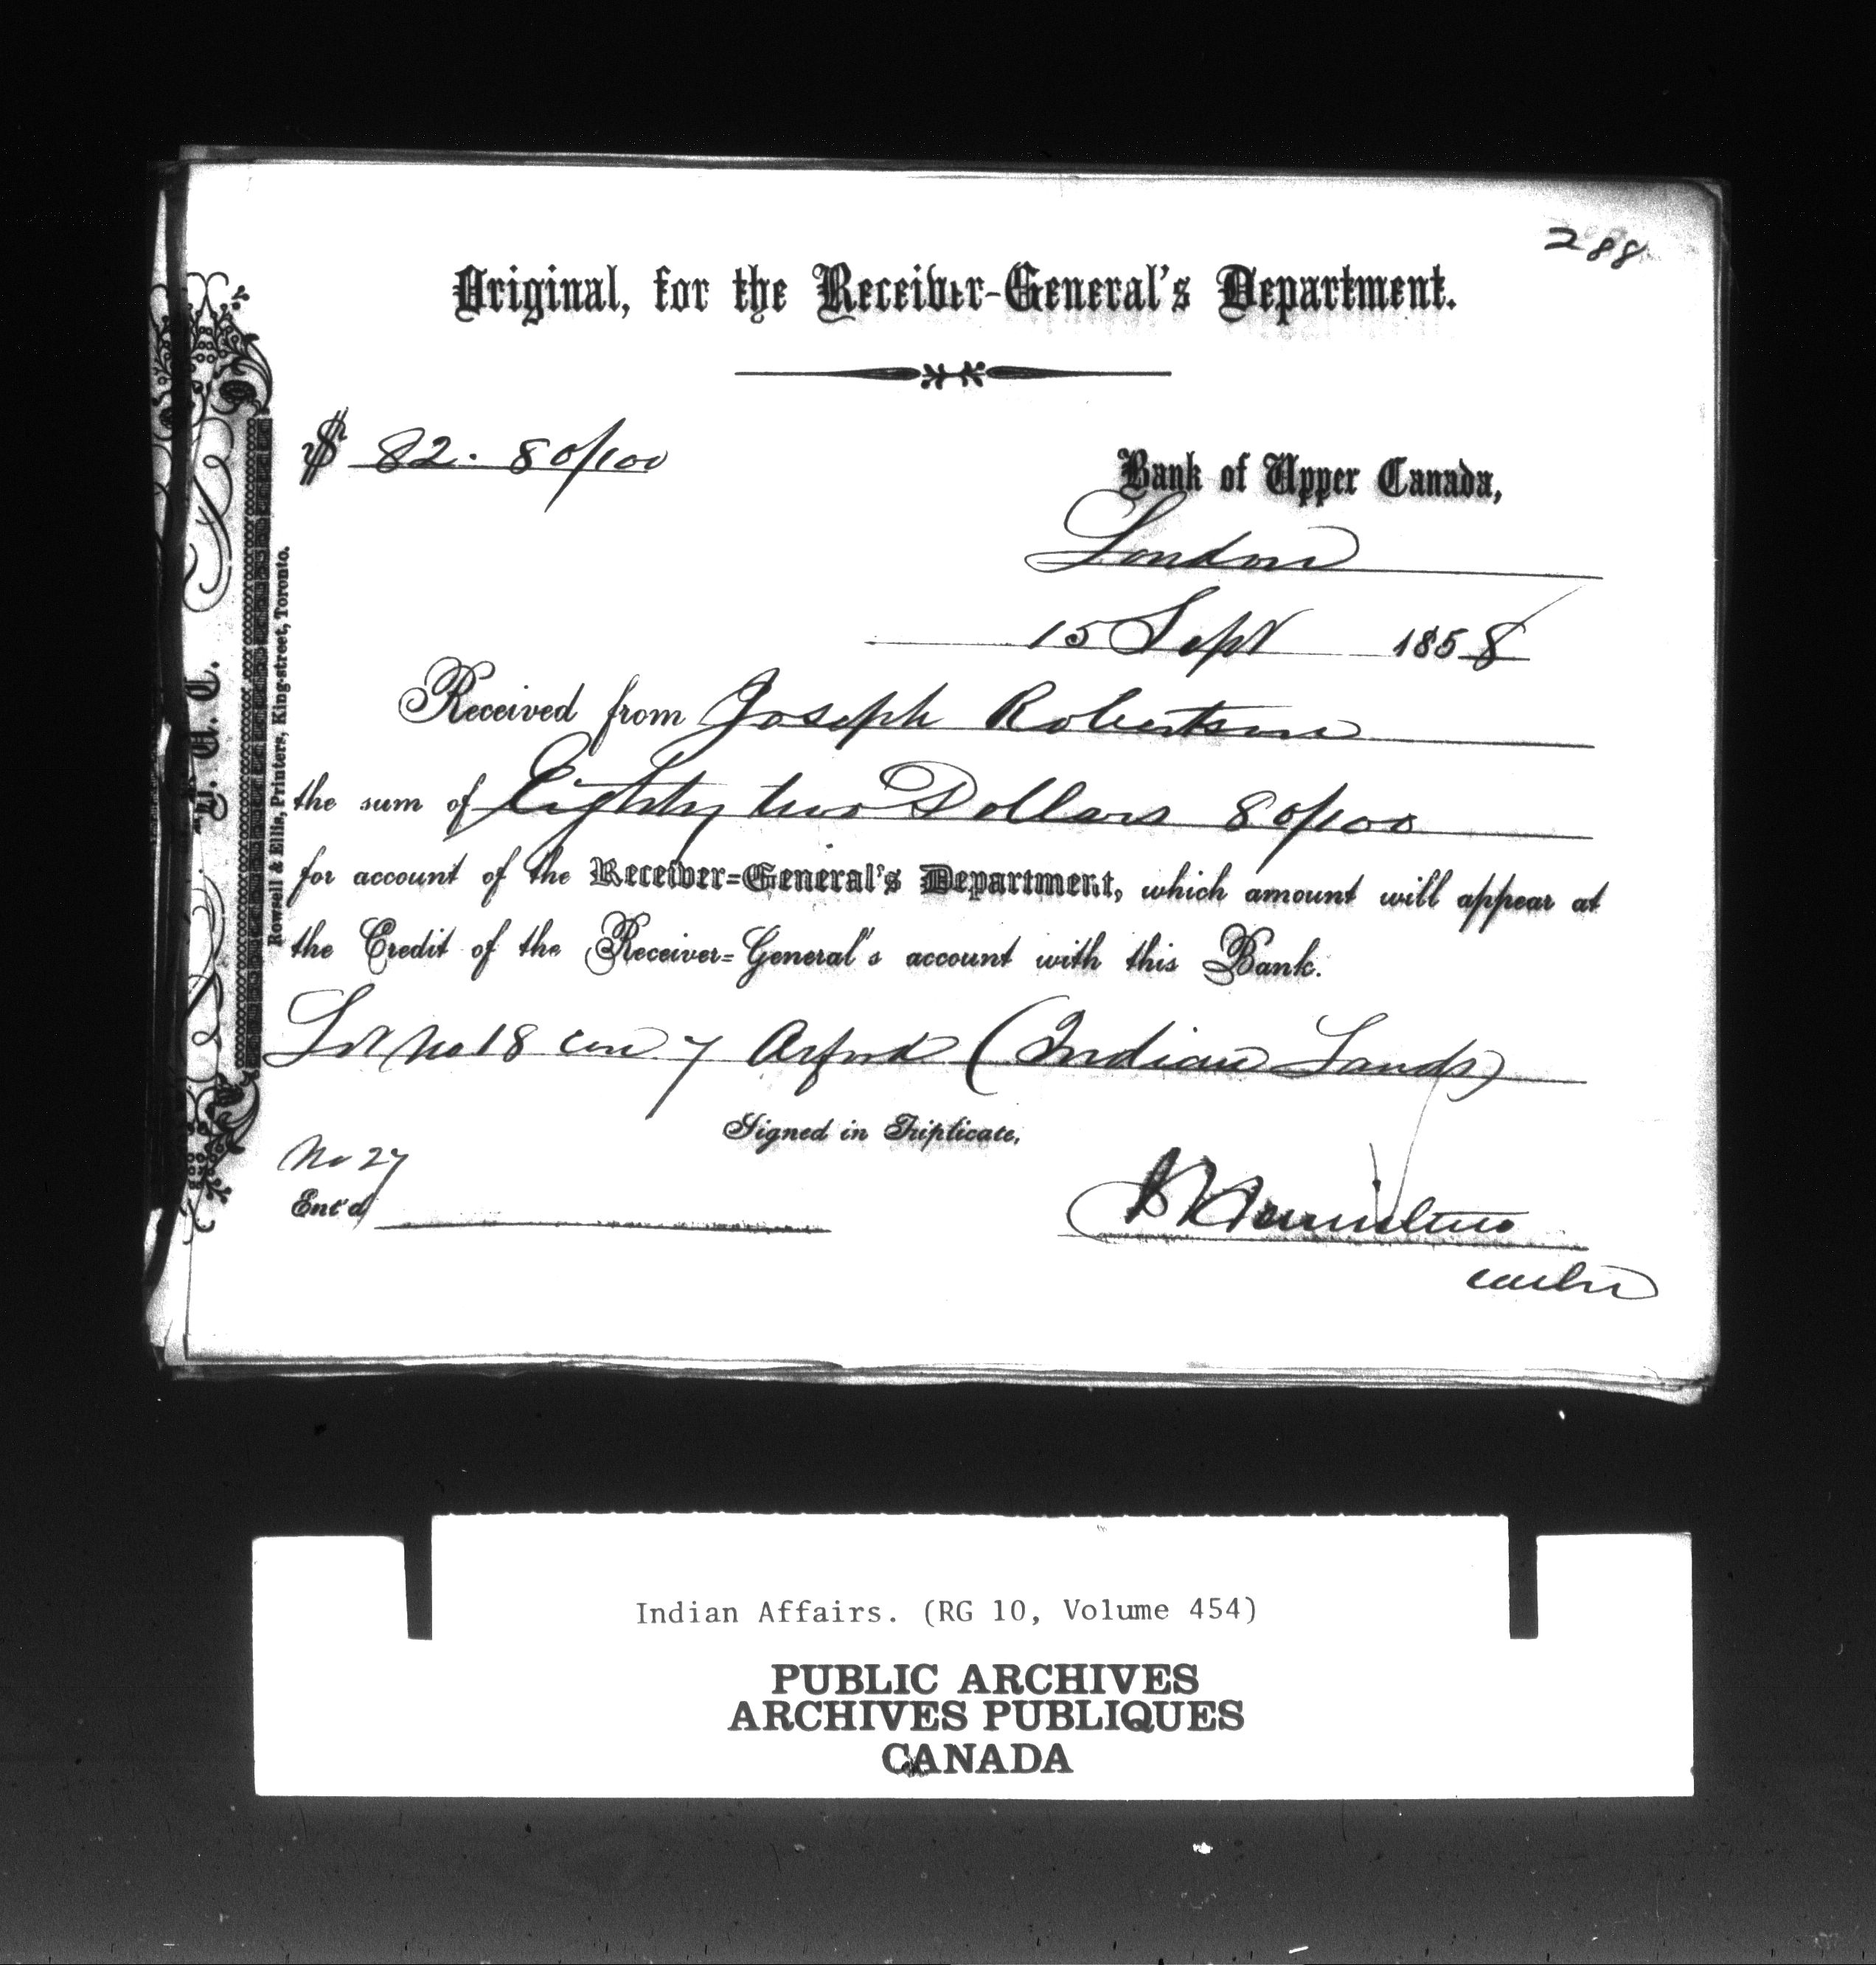 288
Original, for the Receiver-General's Department.
$ 82. 80/100
Bank of Upper Canada,
London
15 Sept 1858
Received from Joseph Robertson
the sum of Eighty two Dollars 80/100
for account of the Receiver=General's Department, which amount will appear at
the Credit of the Receiver=General's account with this Bank.
Lot No 18 con 7 Arford (Indian Lands)
Signed in Triplicate,
No 27
Ent'd
Rowsell & Ellis, Printers, King-street, Toronto.
Indian Affairs. (RG 10, Volume 454)
PUBLIC ARCHIVES
ARCHIVES PUBLIQUES
CANADA